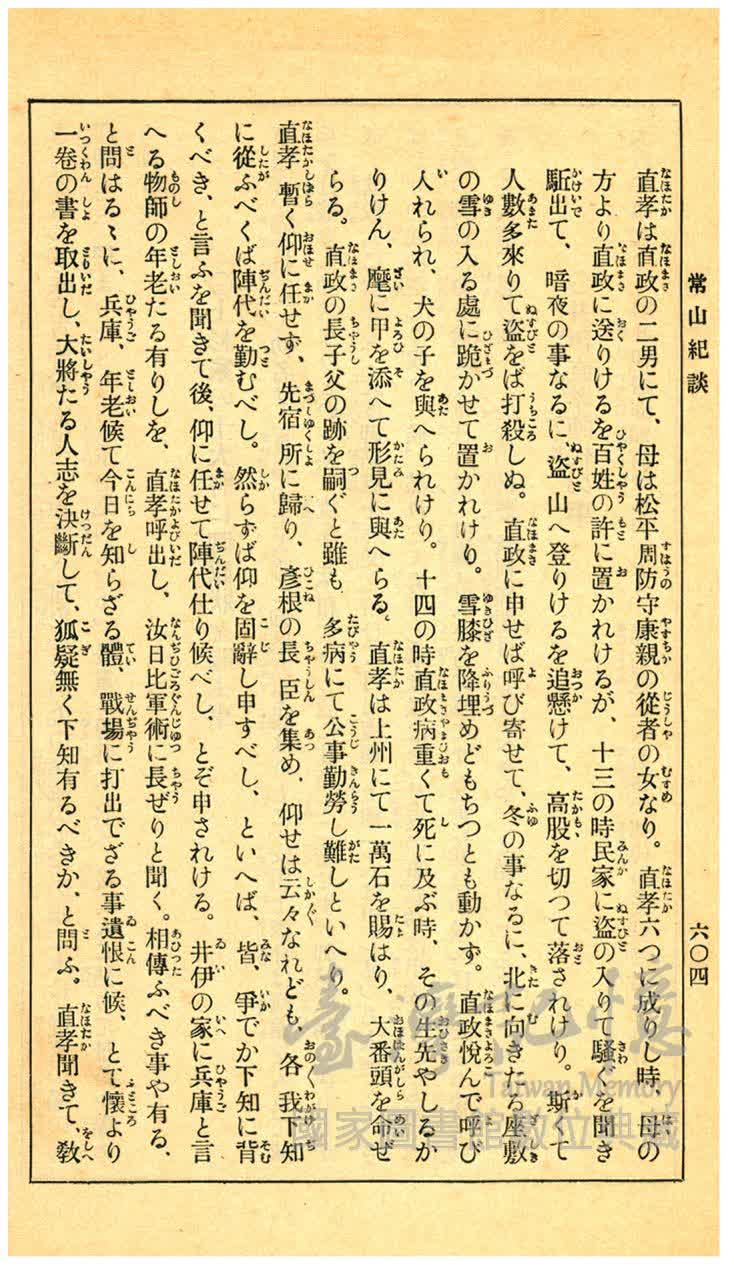 常山紀談
六〇四
直孝は直政の二男にて、母は松平周防守康親の從者の女なり。直孝六つに成りし時、母の
方より直政に送りけるを百姓の許に置かれけるが、十三の時民家に盜の入りて騷ぐを聞き
駈出て、暗夜の事なるに、盜山へ登りけるを追懸けて、高股を切つて落されけり。斯くて
人數多來りて盜をば打殺しぬ。直政に申せば呼び寄せて、冬の事なるに、北に向きたる座敷
の雪の入る處に跪かせて置かれけり。雪膝を降埋めどもちつとも動かず。直政悅んで呼び
入れられ、犬の子を與へられけり。十四の時直政病重くて死に及ぶ時、その生先やしるか
りけん、麾に甲を添へて形見に與へらる。直孝は上州にて一萬石を賜はり、大番頭を命ぜ
らる。直政の長子父の跡を嗣ぐと雖も 多病にて公事勤勞し難しといへり。
直孝暫く仰に任せず、先宿所に歸り、彥根の長臣を集め、仰せは云々なれども、各我下知
に從ふべくば陣代を勤むべし。然らずば仰を固辭し申すべし、といへば、皆、爭でか下知に背
くべき、と言ふを聞きて後、仰に任せて陣代仕り候べし、とぞ申されける。井伊の家に兵庫と言
へる物師の年老たる有りしを、直孝呼出し、汝日比軍術に長ぜりと聞く。相傳ふべき事や有る、
と問はるゝに、兵庫、年老候て今日を知らざる體、戰場に打出でざる事遺恨に候、とて懷より
一卷の書を取出し、大將たる人志を決斷して、狐疑無く下知有るべきか、と問ふ。直孝聞きて、敎
臺灣記憶
Taiwan Memory
國家圖書館數位典藏